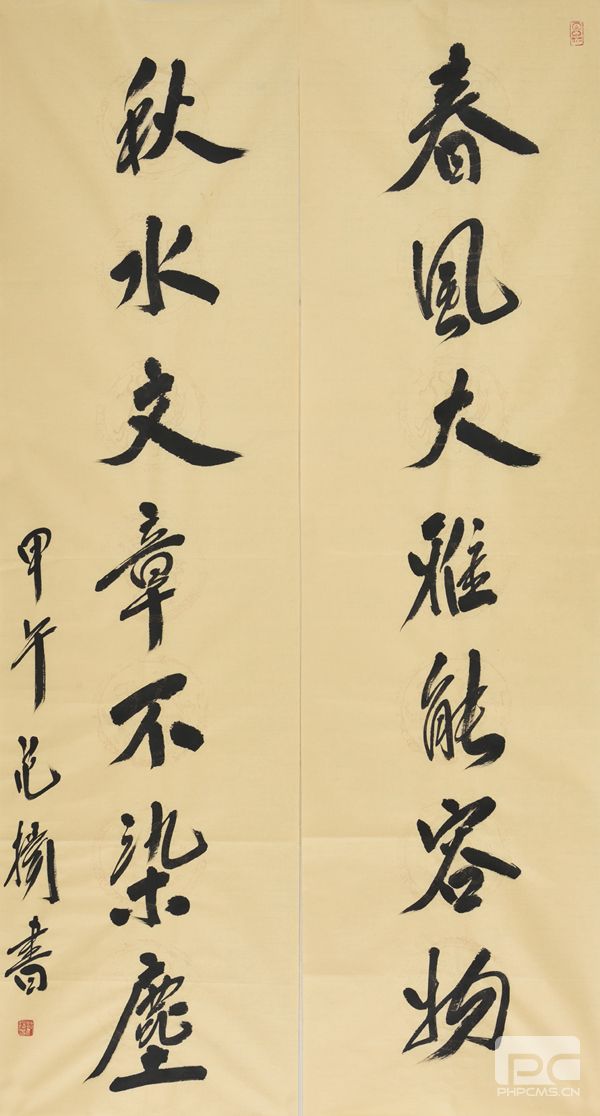 春風大雅能容物
秋水文章不染塵
甲午范
書
PC
PHPCMS.CN